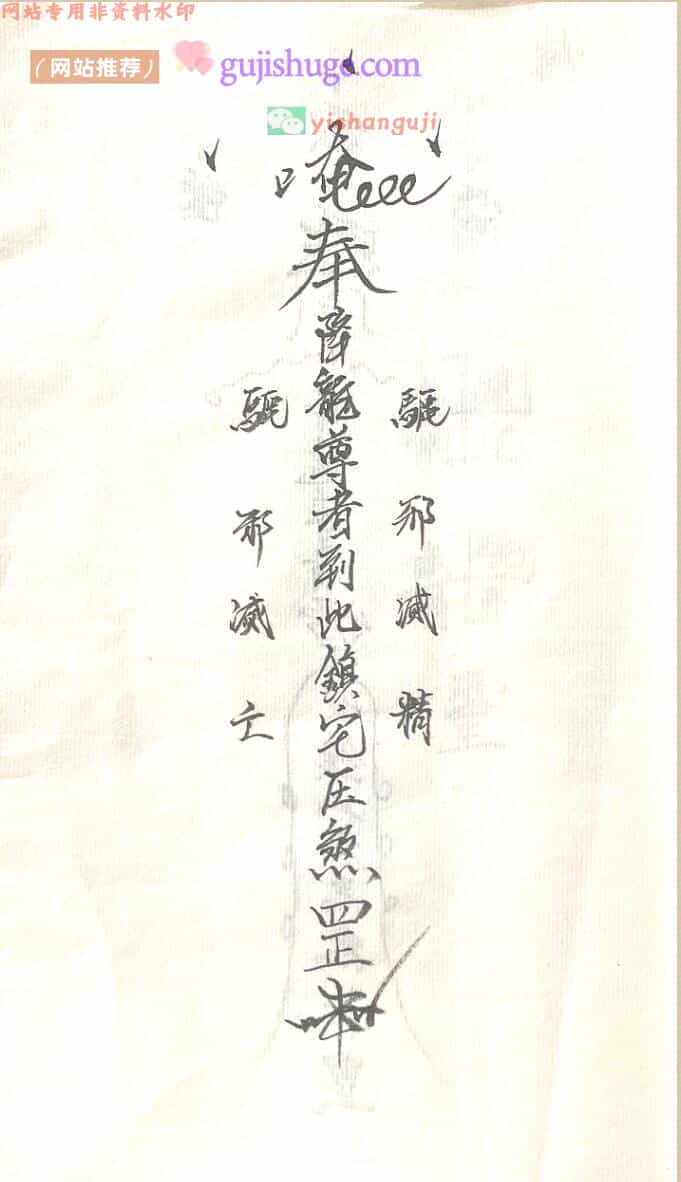 网站专用非资料水印
（网站推荐） gujishuge.com
yishanguji
唵
奉
降龍尊者到此鎮宅压煞罡
驅邪滅精
驅邪滅亡